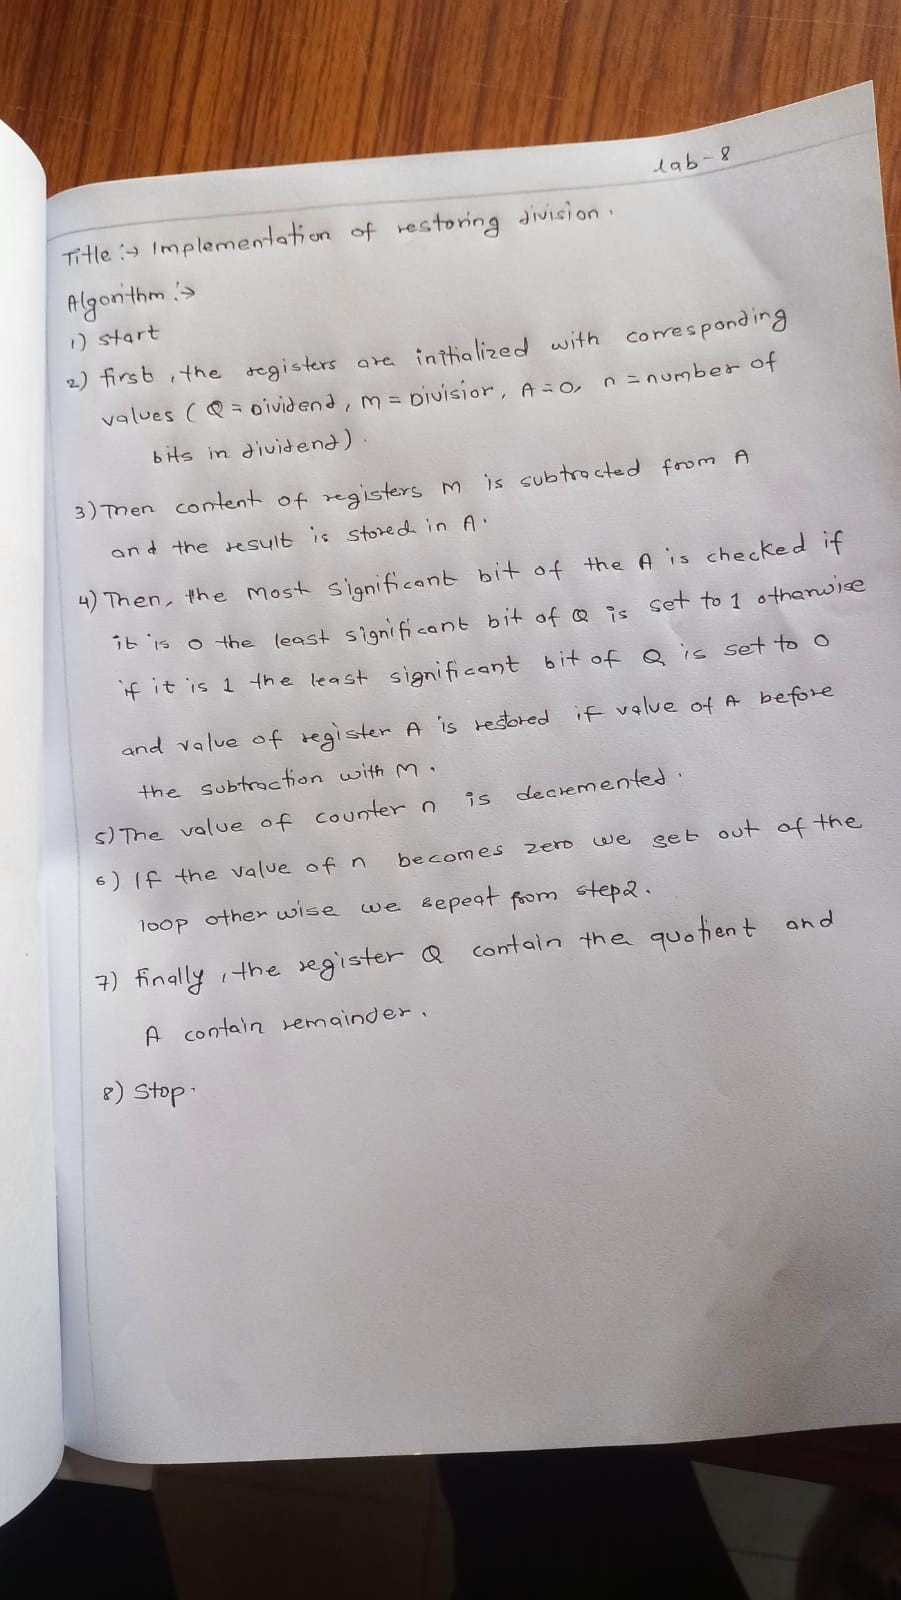 lab-8
Title :→ Implementation of restoring division.
Algorithm :→
1) start
2) first, the registers are initialized with corresponding
values (Q = Dividend, M = Divisior, A = 0, n = number of
bits in dividend).
3) Then content of registers M is subtracted from A
and the result is stored in A.
4) Then, the most significant bit of the A is checked if
it is 0 the least significant bit of Q is set to 1 otherwise
if it is 1 the least significant bit of Q is set to 0
and value of register A is restored if value of A before
the subtraction with M.
5) The value of counter n is decremented.
6) If the value of n becomes zero we get out of the
loop other wise we repeat from step2.
7) finally, the register Q contain the quotient and
A contain remainder.
8) Stop.